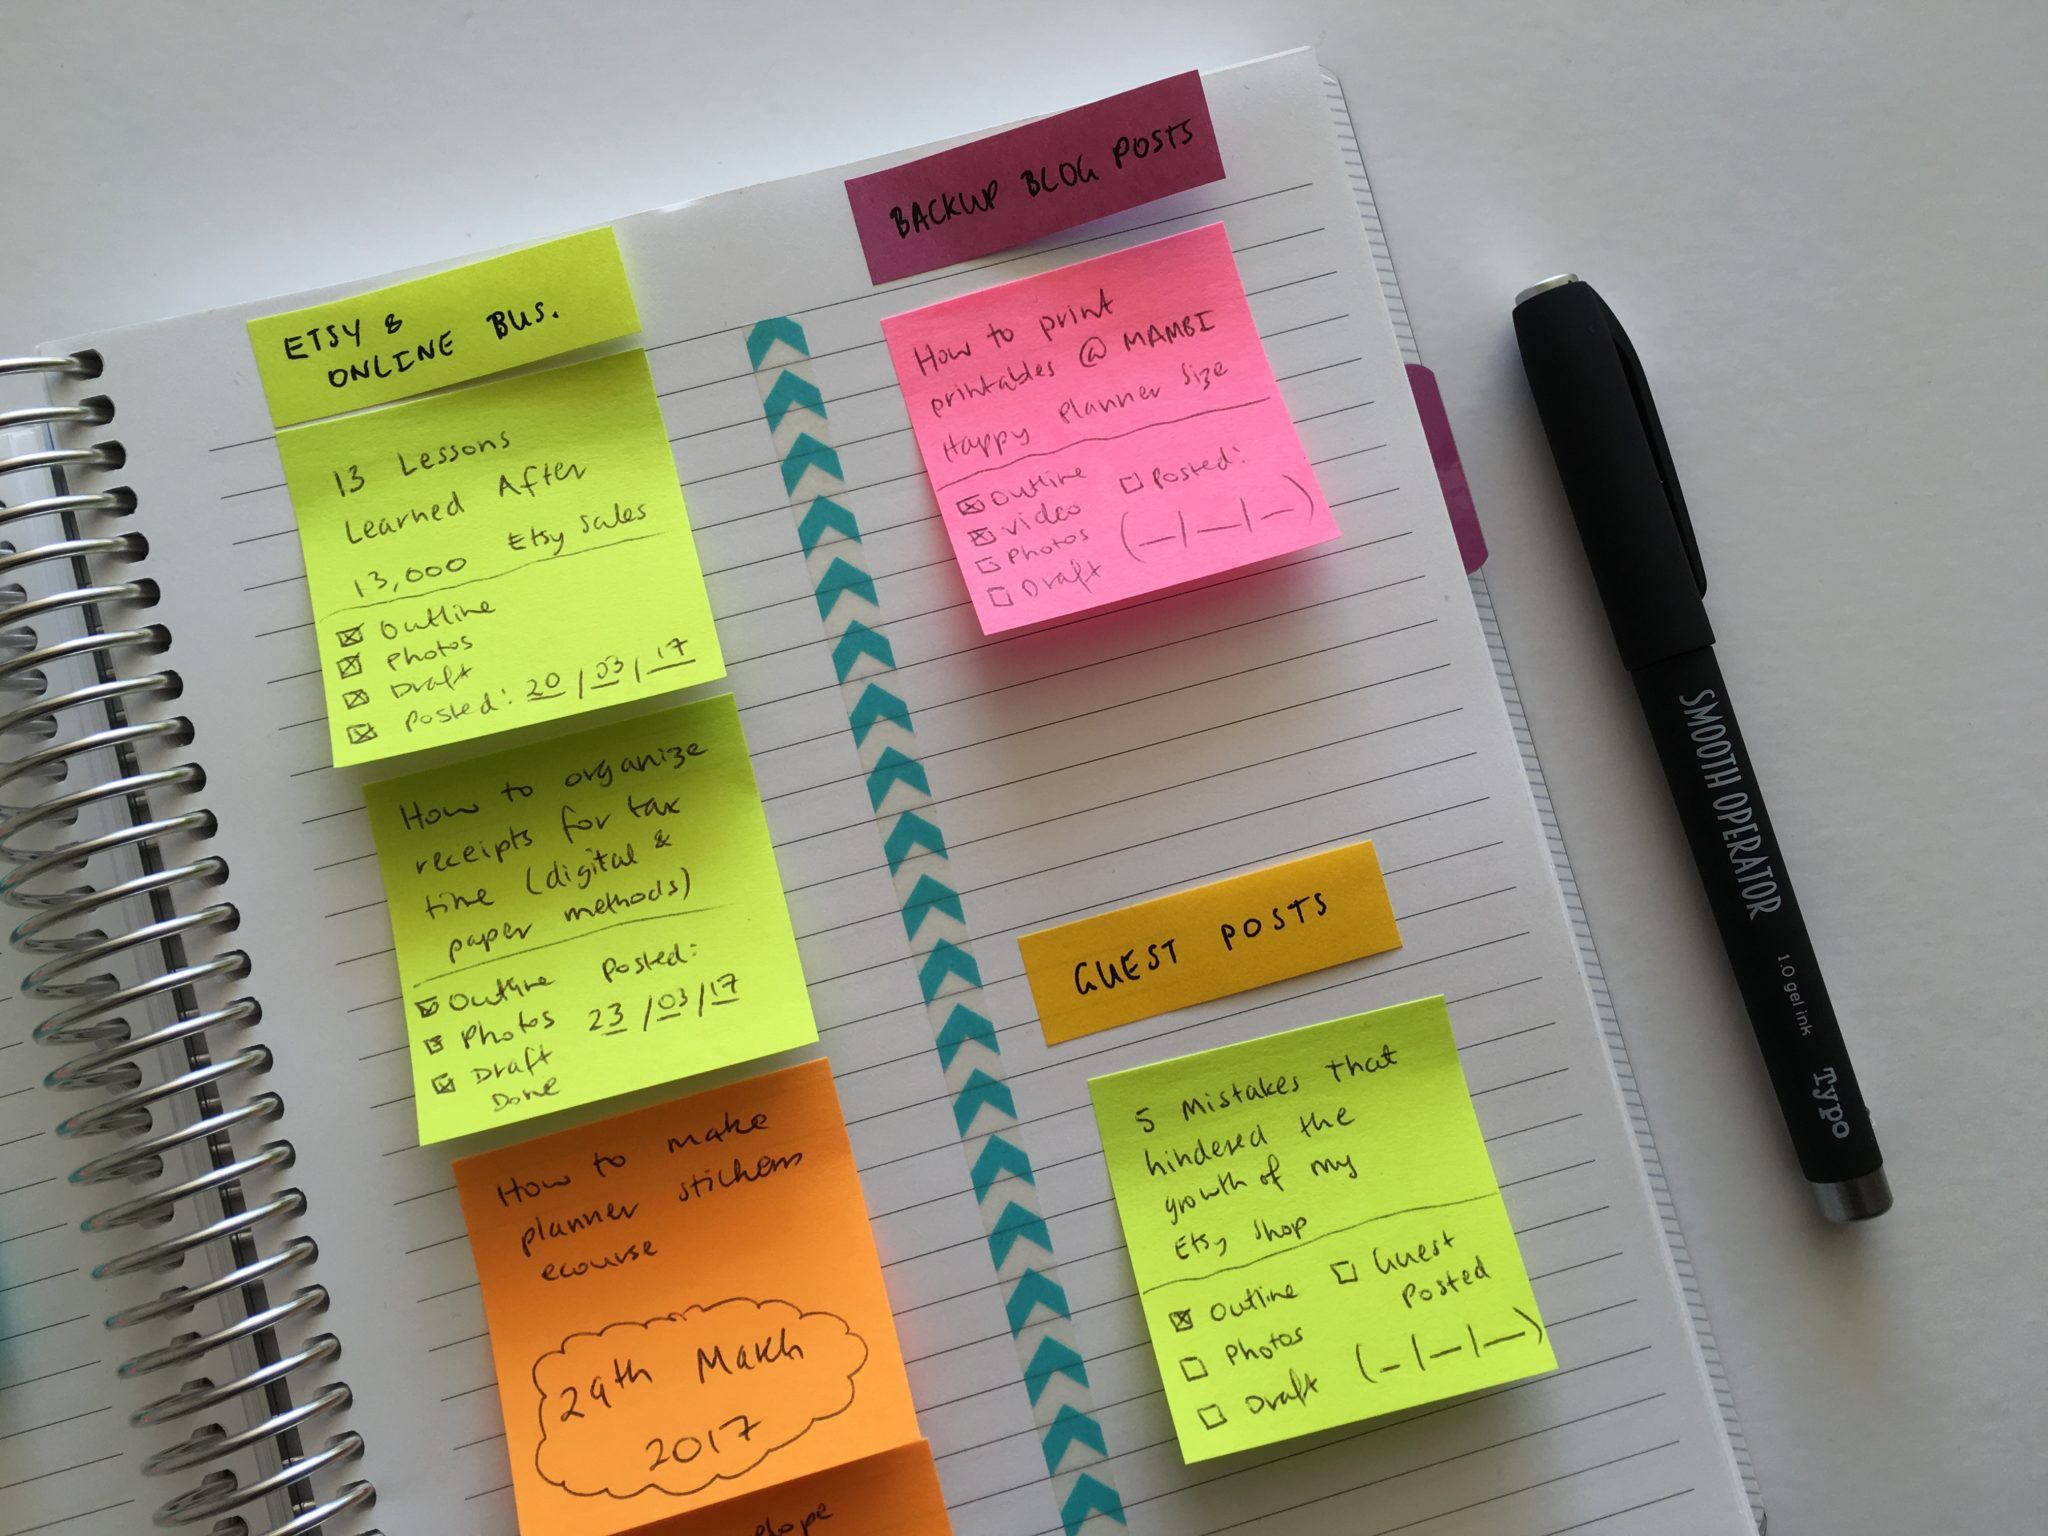 ETSY &
ONLINE BUS.
13 Lessons
Learned After
13,000 Etsy Sales
☒ Outline
☒ Photos
☒ Draft
☒ Posted: 20/03/17
How to organize
receipts for tax
time (digital &
paper methods)
☒ Outline Posted:
☒ Photos 23/03/17
☒ Draft
Done
How to make
planner stickers
ecourse
29th March
2017
BACKUP BLOG POSTS
How to print
printables @ MAMBI
Happy Planner Size
☒ Outline ☐ Posted:
☒ Video (_/_/_)
☐ Photos
☐ Draft
GUEST POSTS
5 Mistakes that
hindered the
growth of my
Etsy Shop
☒ Outline ☐ Guest
Posted
☐ Photos
☐ Draft (_/_/_)
SMOOTH OPERATOR 1.0 gel ink Typo